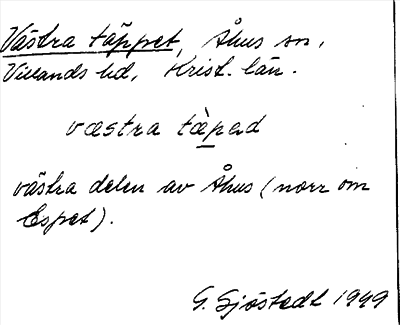 Västra täppet, Åhus sn,
Villands hd, Krist. län.
væstra tæ̀pəd
västra delen av Åhus (norr om
Espet).
G. Sjöstedt 1949